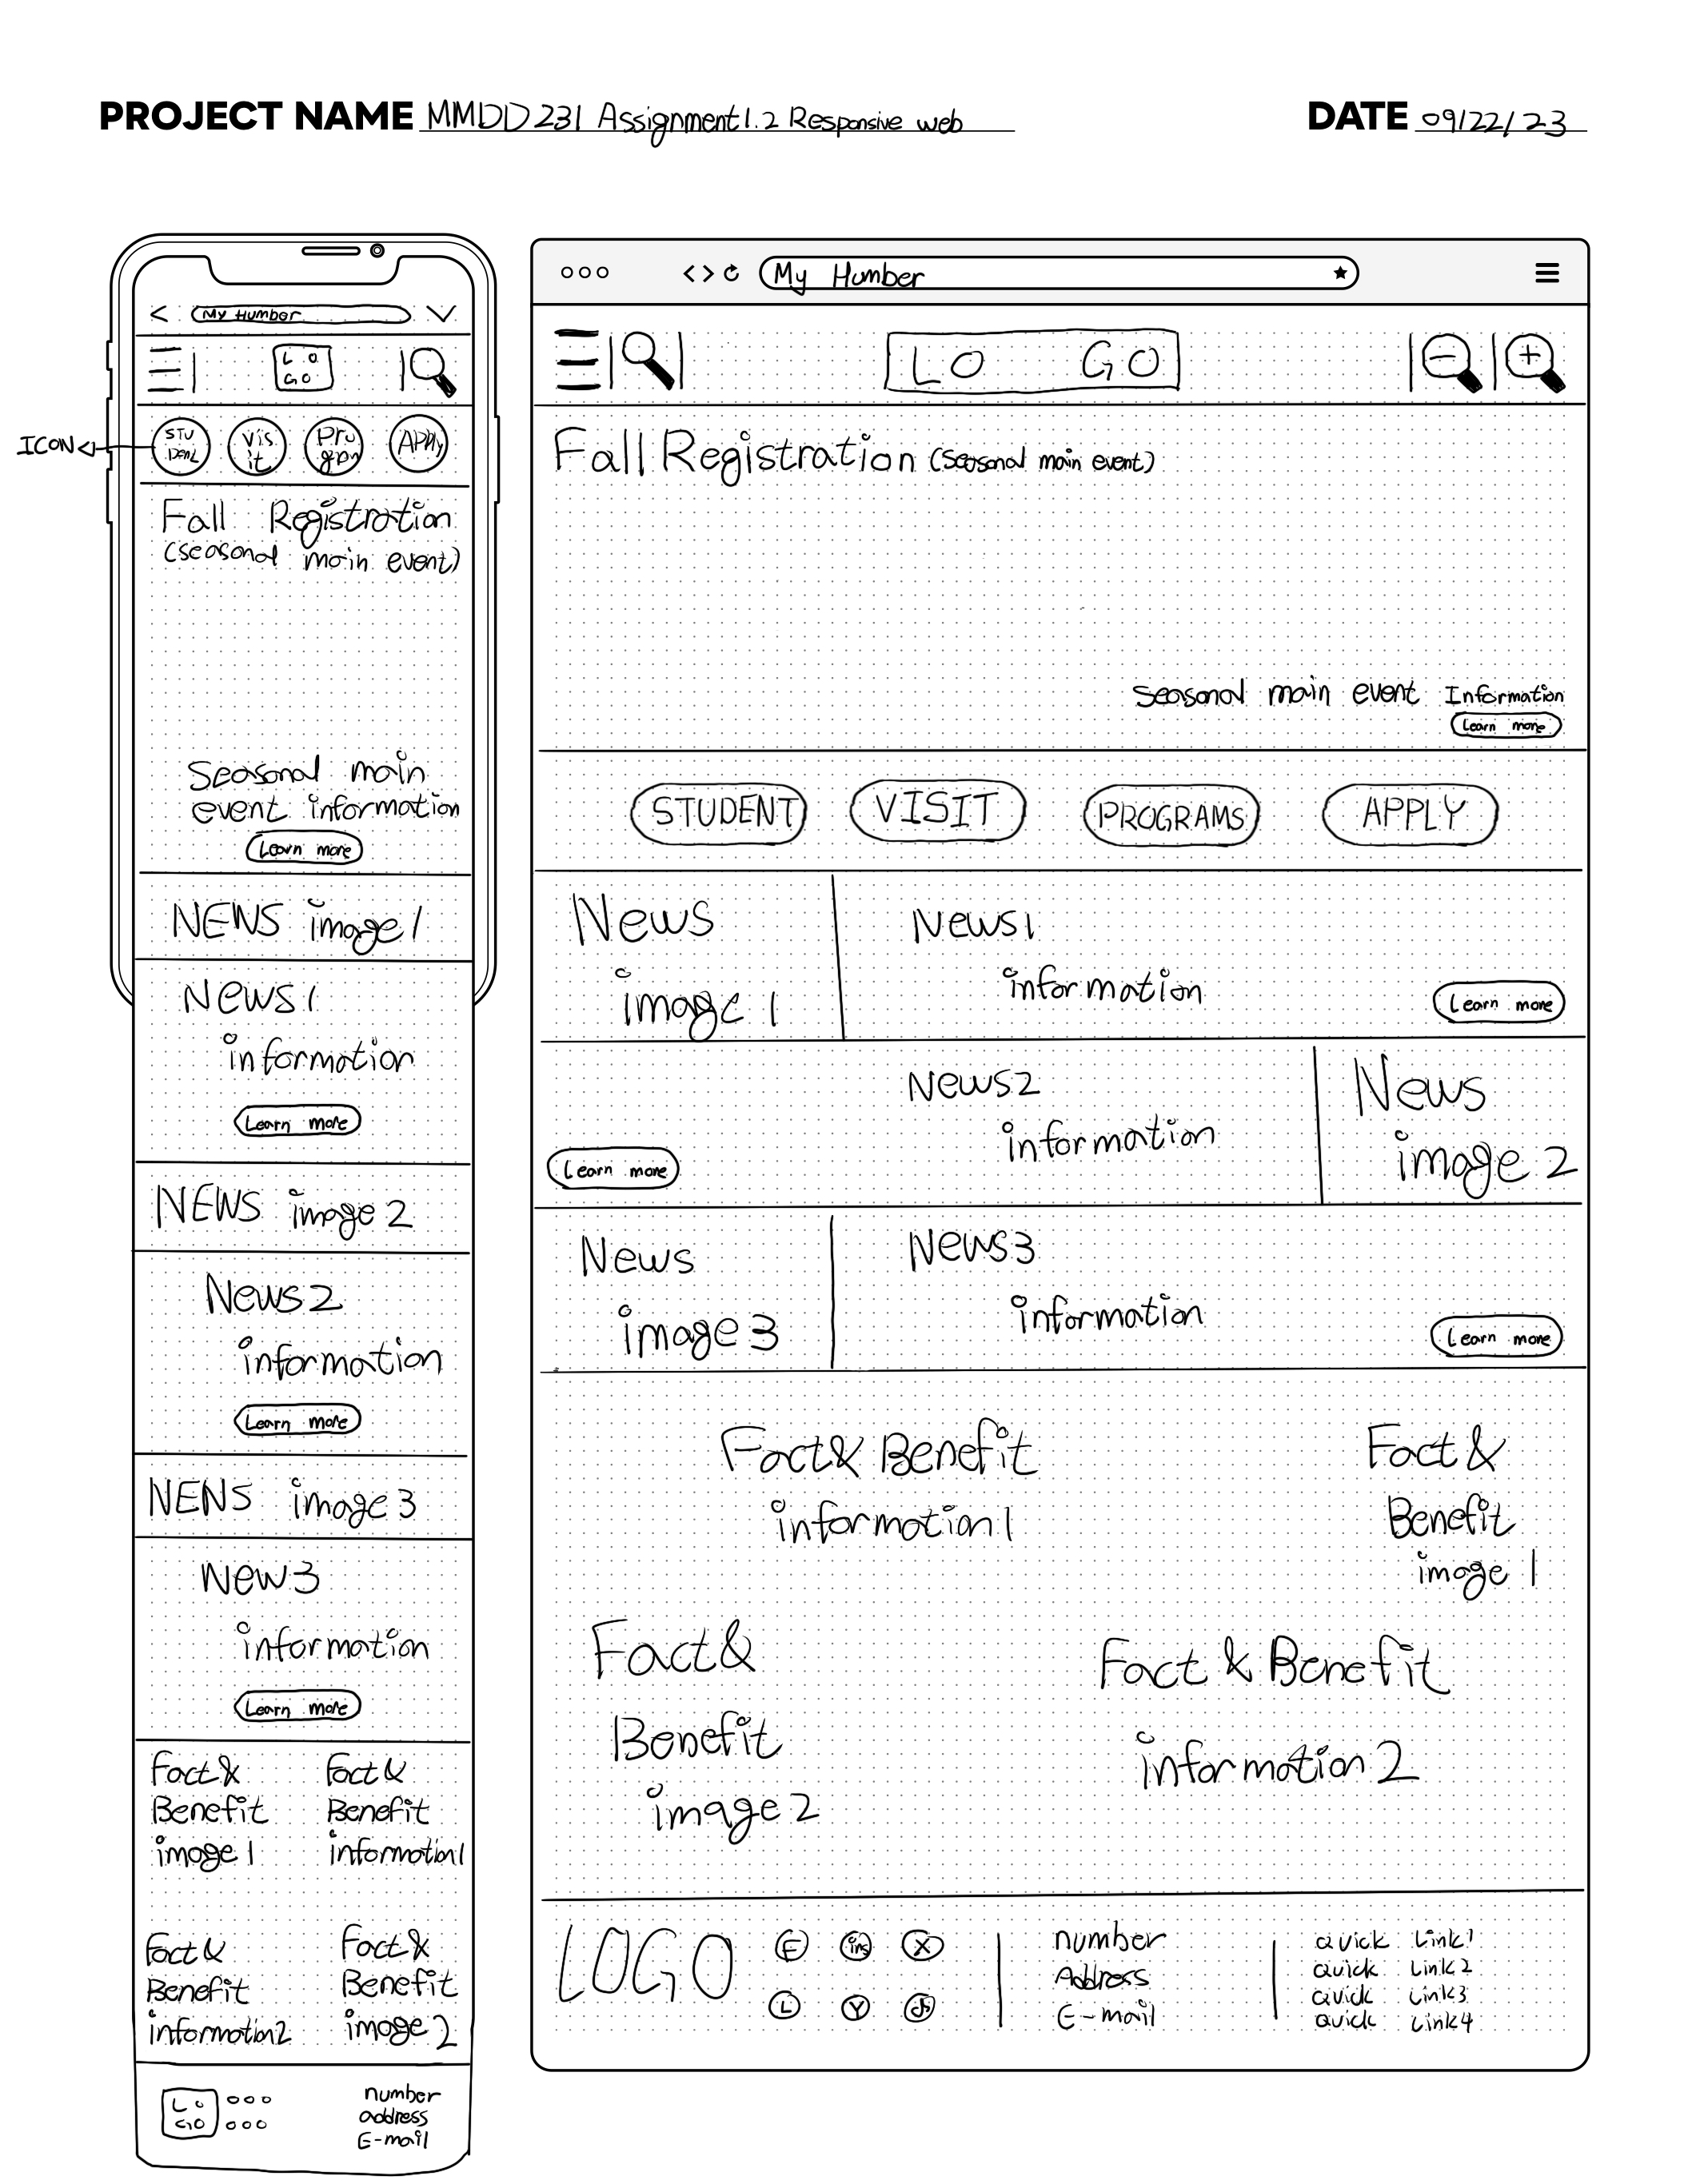 PROJECT NAME MMDD231 Assignment1.2 Responsive web
DATE 09/22/23
My Humber
LO
GO
ICON
STU
DENT
Vis
it
Pro
Apply
Fall Registration
(seasonal main event)
Seasonal main
event information
Learn more
NEWS image1
News1
information
Learn more
NEWS image2
News2
information
Learn more
NENS image3
New3
information
Learn more
Fact&
Benefit
image1
Fact&
Benefit
information1
Fact&
Benefit
information2
Fact&
Benefit
image2
LO
GO
number
address
E-mail
My Humber
LO GO
Fall Registration (seasonal main event)
Seasonal main event Information
Learn more
STUDENT VISIT PROGRAMS APPLY
News
image 1
News1
information
Learn more
News2
information
Learn more
News
image 2
News
image 3
News3
information
Learn more
Fact& Benefit
information1
Fact&
Benefit
image 1
Fact&
Benefit
image 2
Fact & Benefit
information 2
LOGO
F ins X
L Y
number
Address
E-mail
Quick Link1
Quick Link2
Quick Link3
Quick Link4